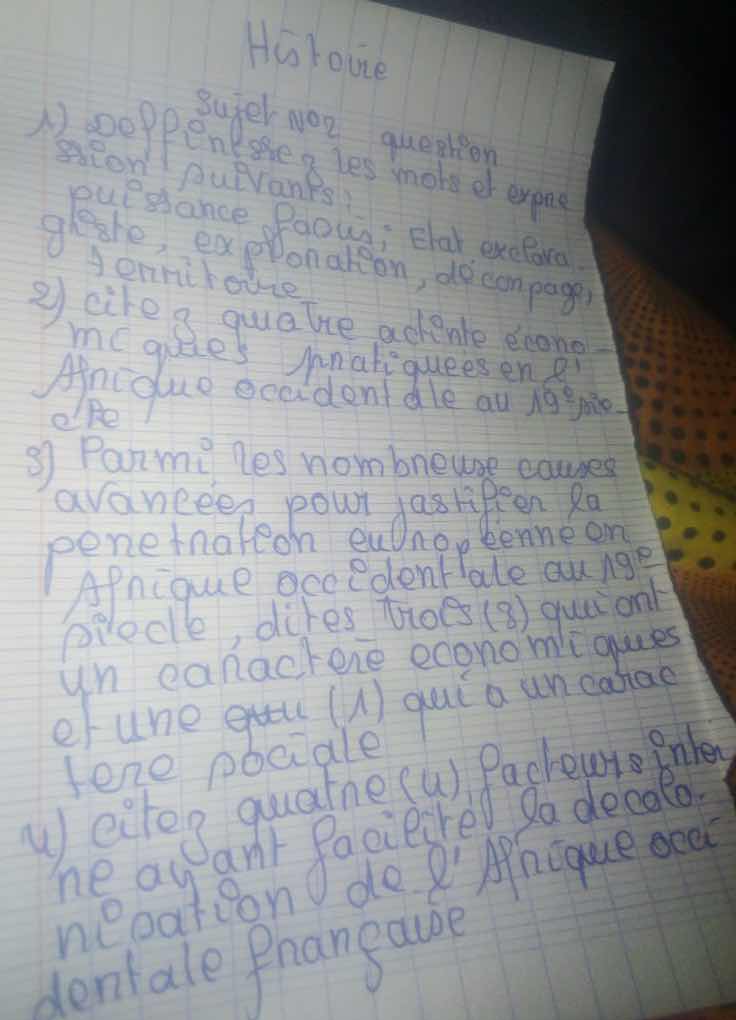 Histoire
Sujet N°2 question
1) Deffinessez les mots et expre
ssion suivants:
puissance faous; Etat esclava.
giste, exploration, découpage,
territoire
2) citez quatre actinte écono-
miques pratiquées en l'
Afrique occidentale au 19e siè-
cle
3) Parmi les nombreuse causes
avancées pour justifier la
penetration européenne en
Afrique occidentale au 19e
siècle, dites trois (3) qui ont
un caractere economiques
et une (1) qui a un carac
tere sociale
4) citez quatre (4) facteurs inter
ne ayant facilité la decolo.
nisation de l'Afrique occi
dentale française